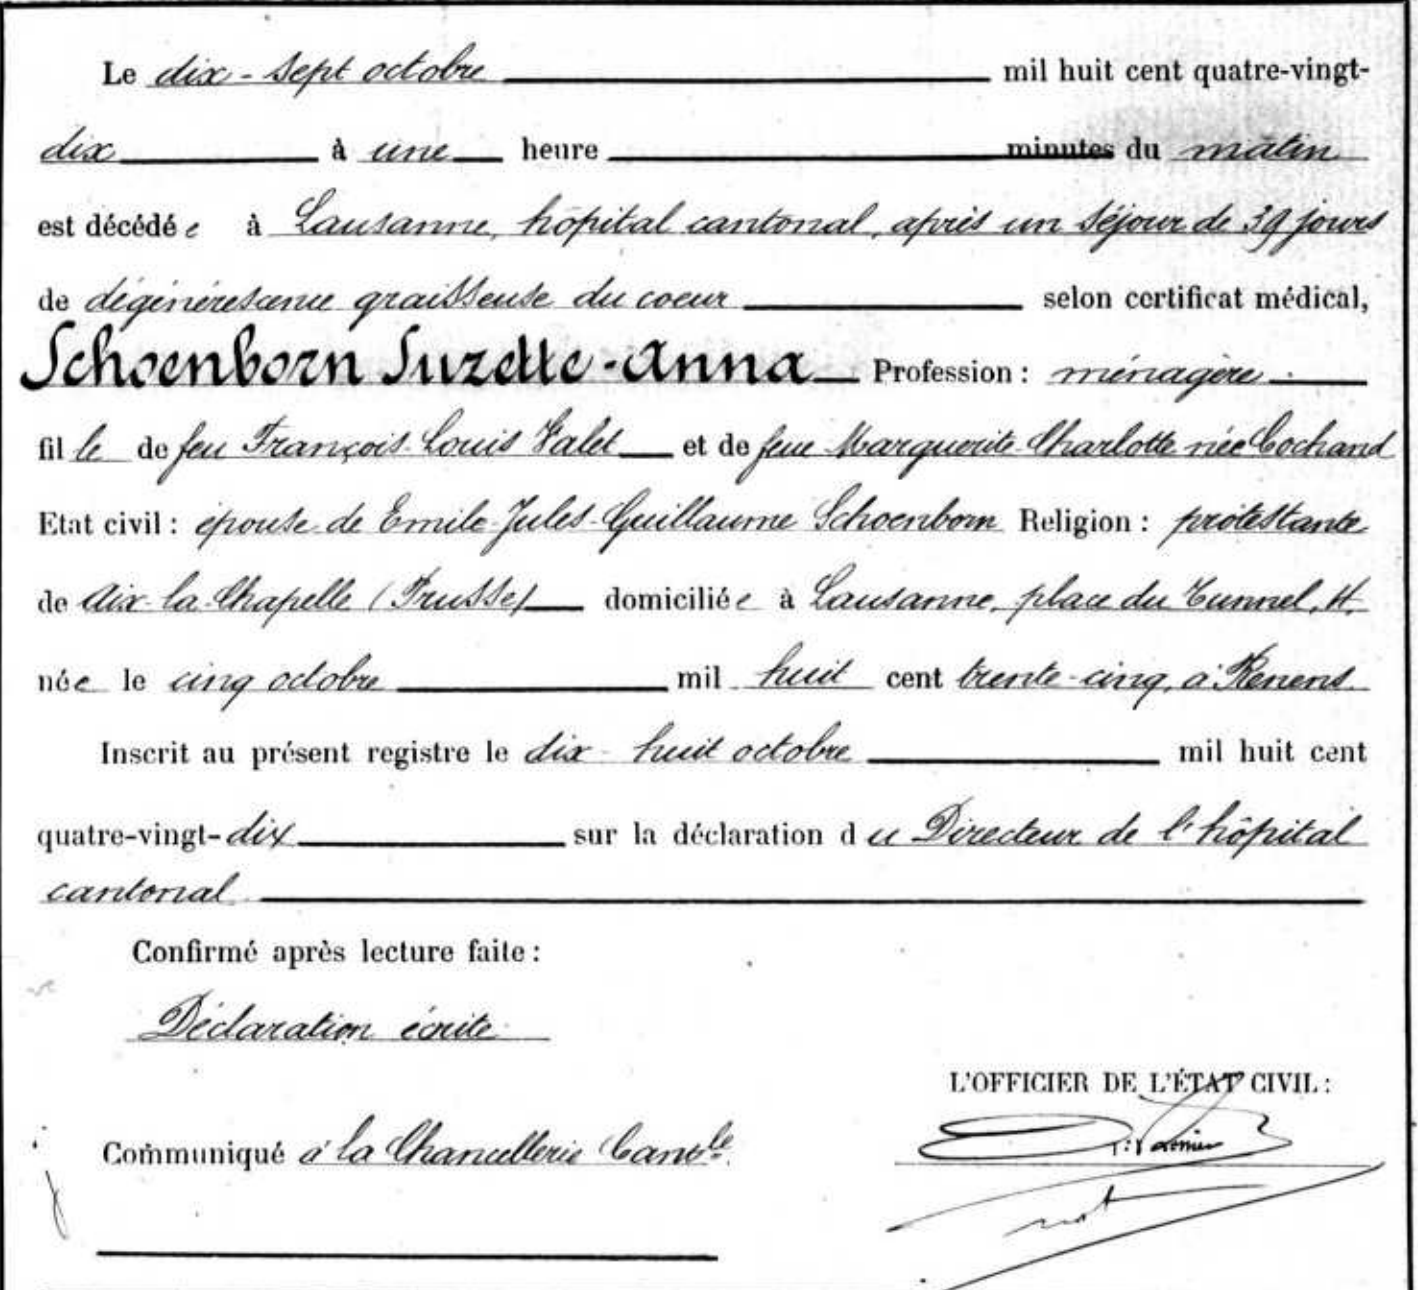 Le dix-sept octobre mil huit cent quatre-vingt-
dix à une heure minutes du matin
est décédée à Lausanne, hôpital cantonal, après un séjour de 39 jours
de dégénérescence graisseuse du coeur selon certificat médical,
Schoenborn Suzette-Anna Profession : ménagère
fille de feu François-Louis Valet et de feue Marguerite-Charlotte née Cochand
Etat civil : épouse de Emile-Jules-Guillaume Schoenborn Religion : protestante
de Aix-la-Chapelle (Prusse) domiciliée à Lausanne, place du Tunnel,
née le cinq octobre mil huit cent trente-cinq, à Renens
Inscrit au présent registre le dix-huit octobre mil huit cent
quatre-vingt-dix sur la déclaration du Directeur de l'hôpital
cantonal
Confirmé après lecture faite :
Déclaration écrite
L'OFFICIER DE L'ÉTAT CIVIL :
Communiqué à la Chancellerie Cantle.
not